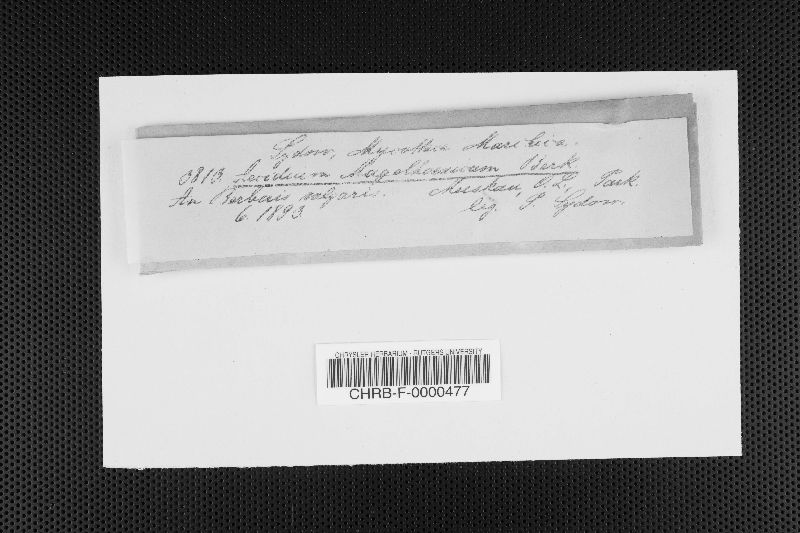 Sydow, Mycotheca Marchica.
3813 Aecidium Magelhaenicum Berk
An Berberis vulgaris. Muskau, O.L., Park.
6. 1893. leg. P. Sydow.
CHRYSLER HERBARIUM - RUTGERS UNIVERSITY
CHRB-F-0000477